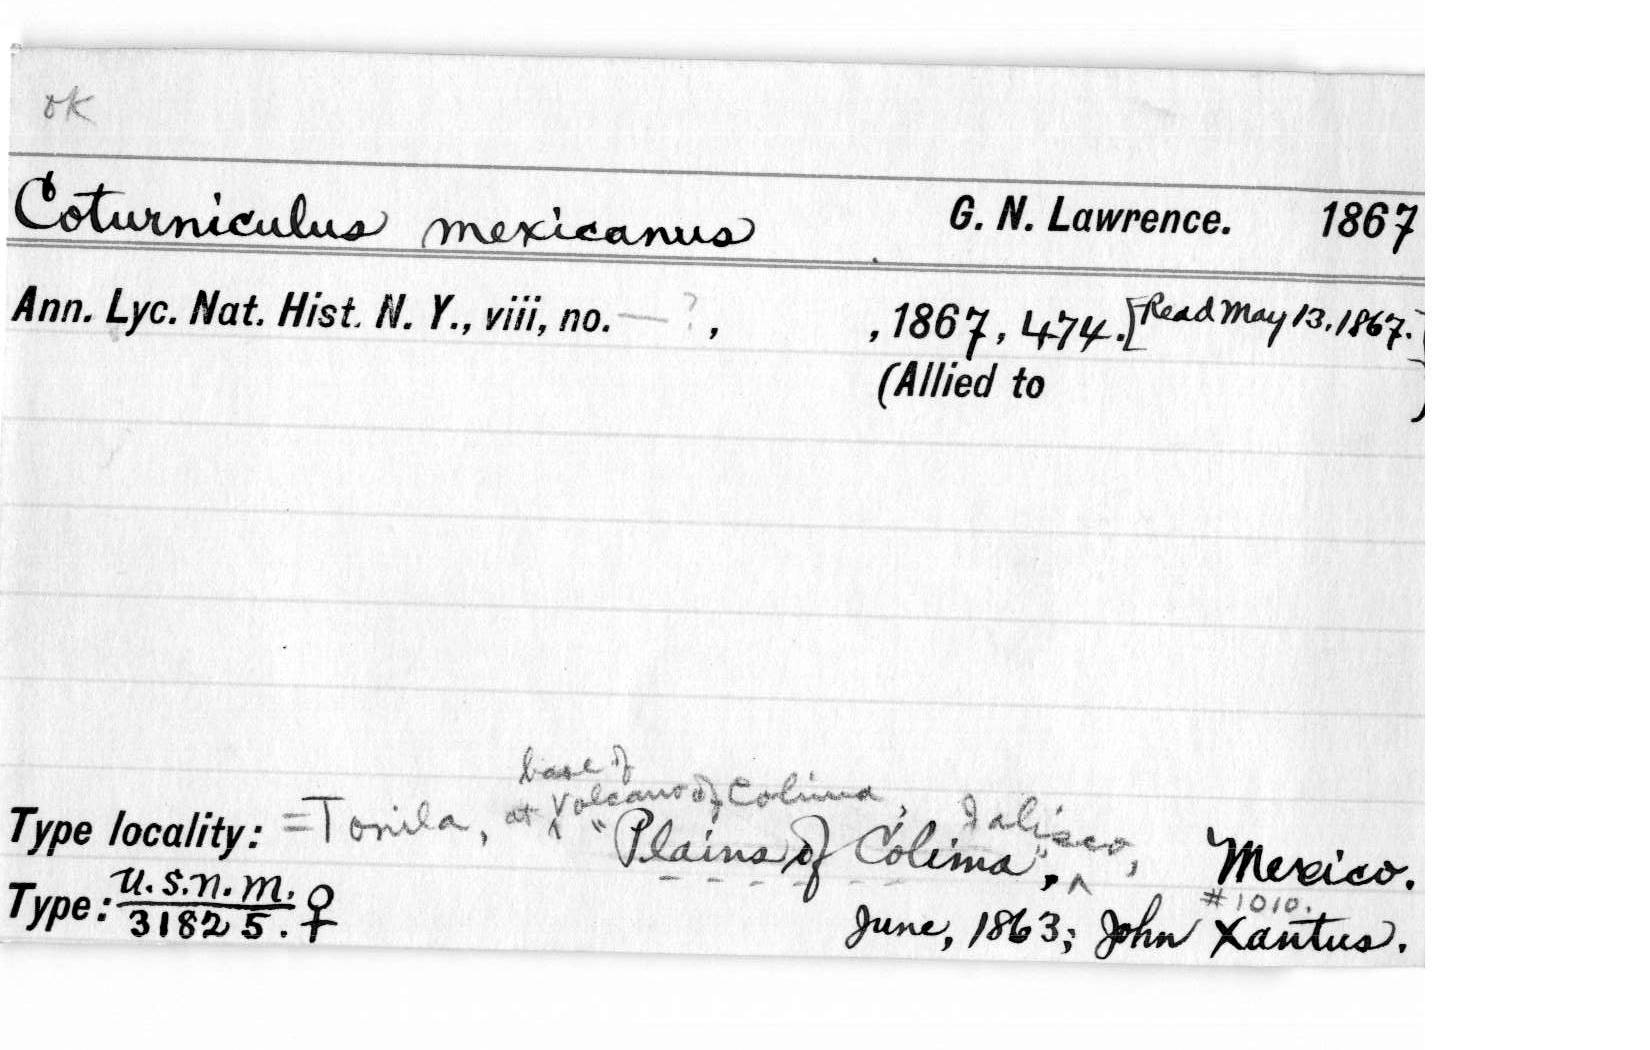 ok
Coturniculus mexicanus G. N. Lawrence. 1867
Ann. Lyc. Nat. Hist. N. Y., viii, no. — ?, , 1867, 474. [Read May 13, 1867.]
(Allied to )
base of
Type locality: = Tonila, at ^ Volcano of Colima, Jalisco,
"Plains of Colima", ^ Mexico.
Type: U.S.N.M. ♀ #1010.
31825. June, 1863; John Xantus.